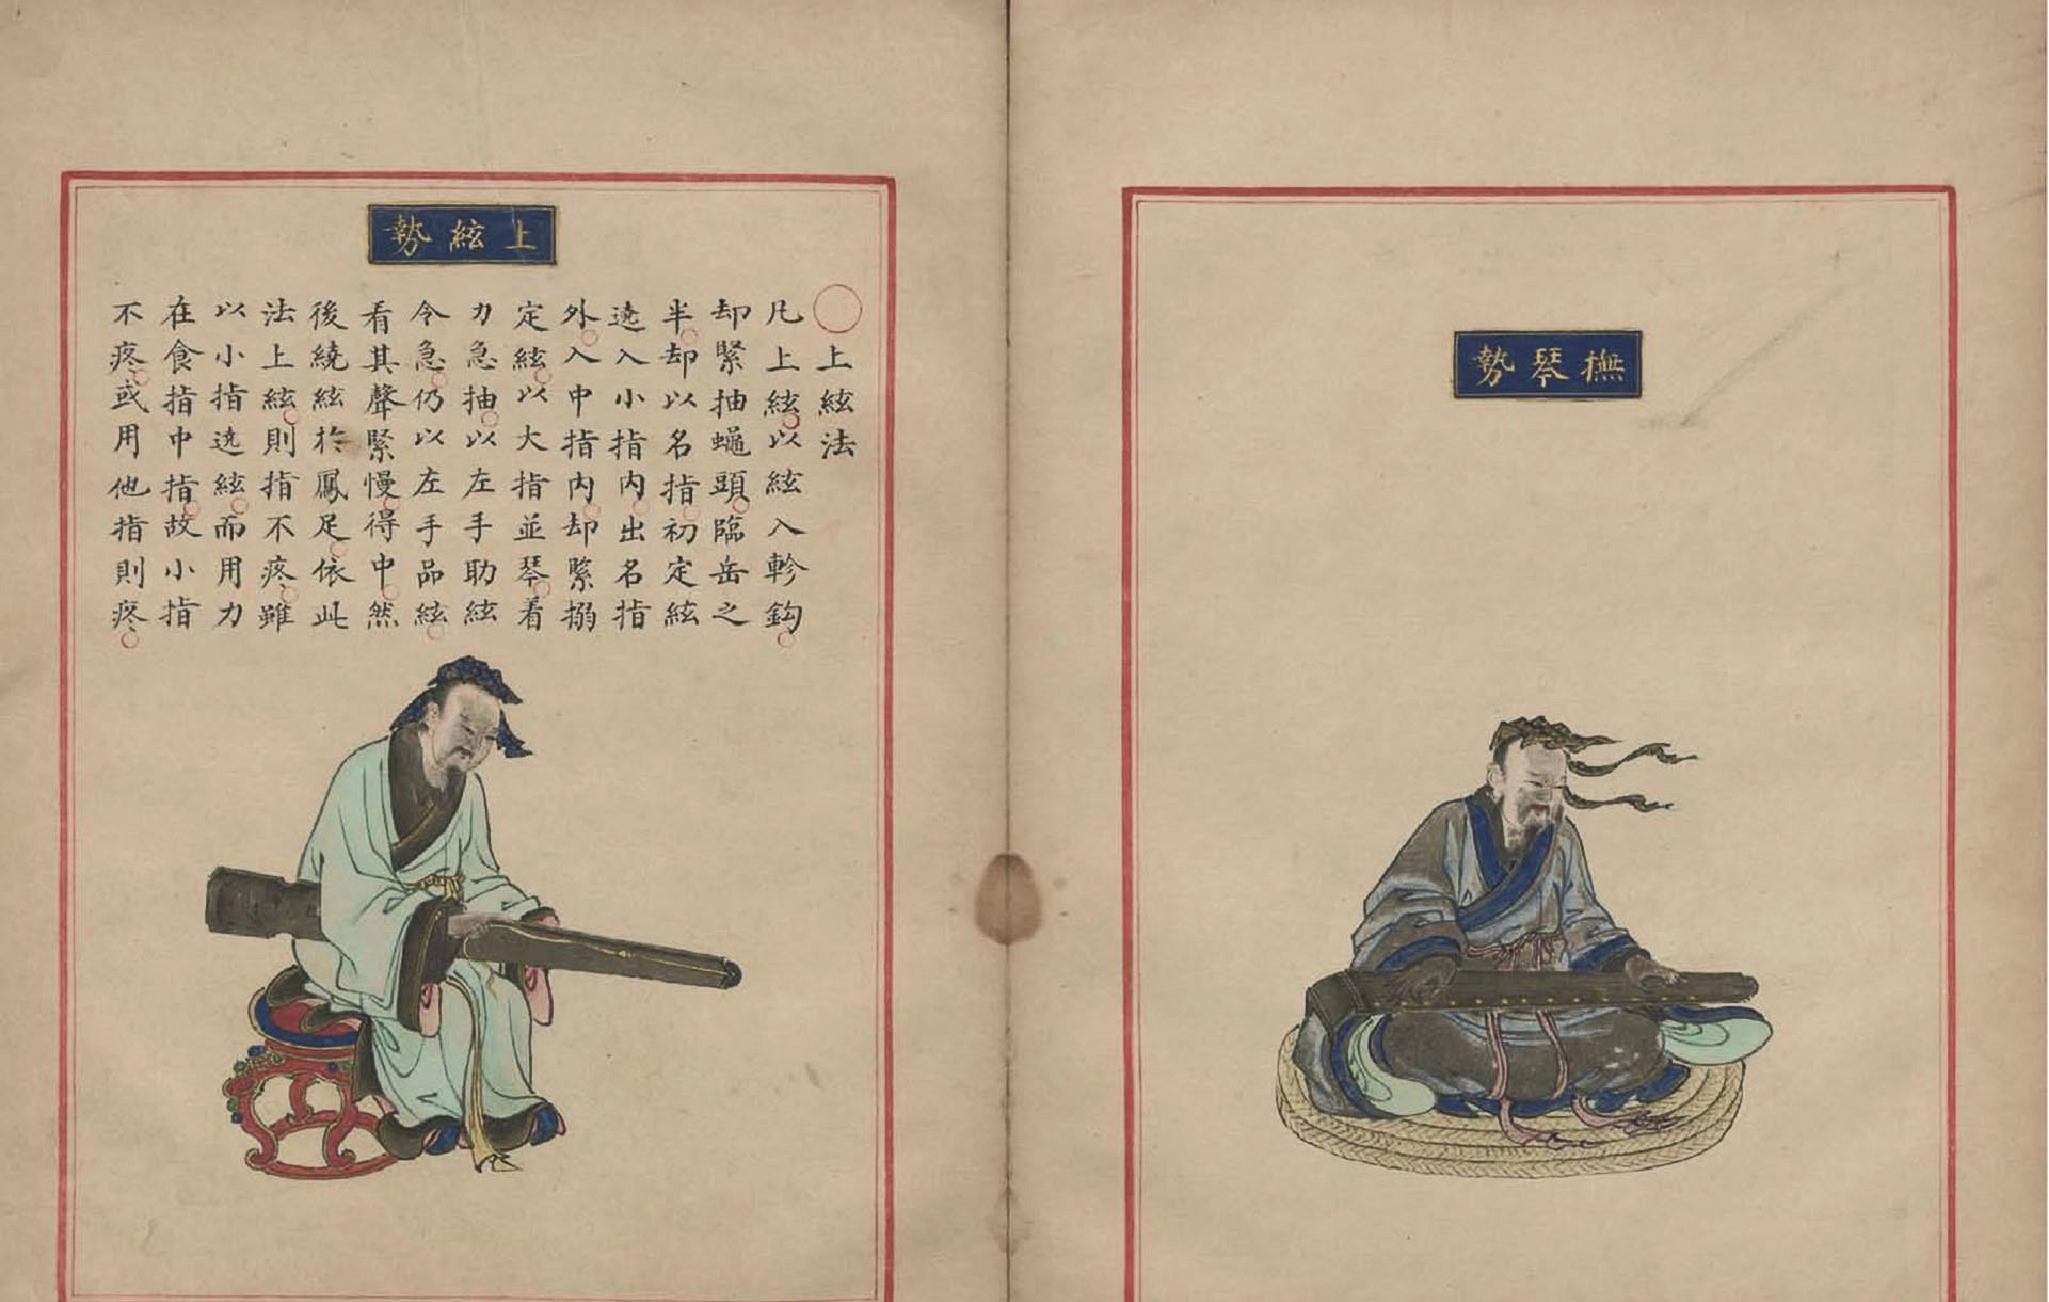 撫琴勢
上絃勢
上絃法
凡上絃以絃入軫鈎
却緊抽蠅頭臨岳之
半却以名指初定絃
遶入小指内出名指
外入中指内却緊搦
定絃以大指並琴看
力急抽以左手助絃
令急仍以左手品絃
看其聲緊慢得中然
後繞絃於鳳足依此
法上絃則指不疼雖
以小指遶絃而用力
在食指中指故小指
不疼或用他指則疼